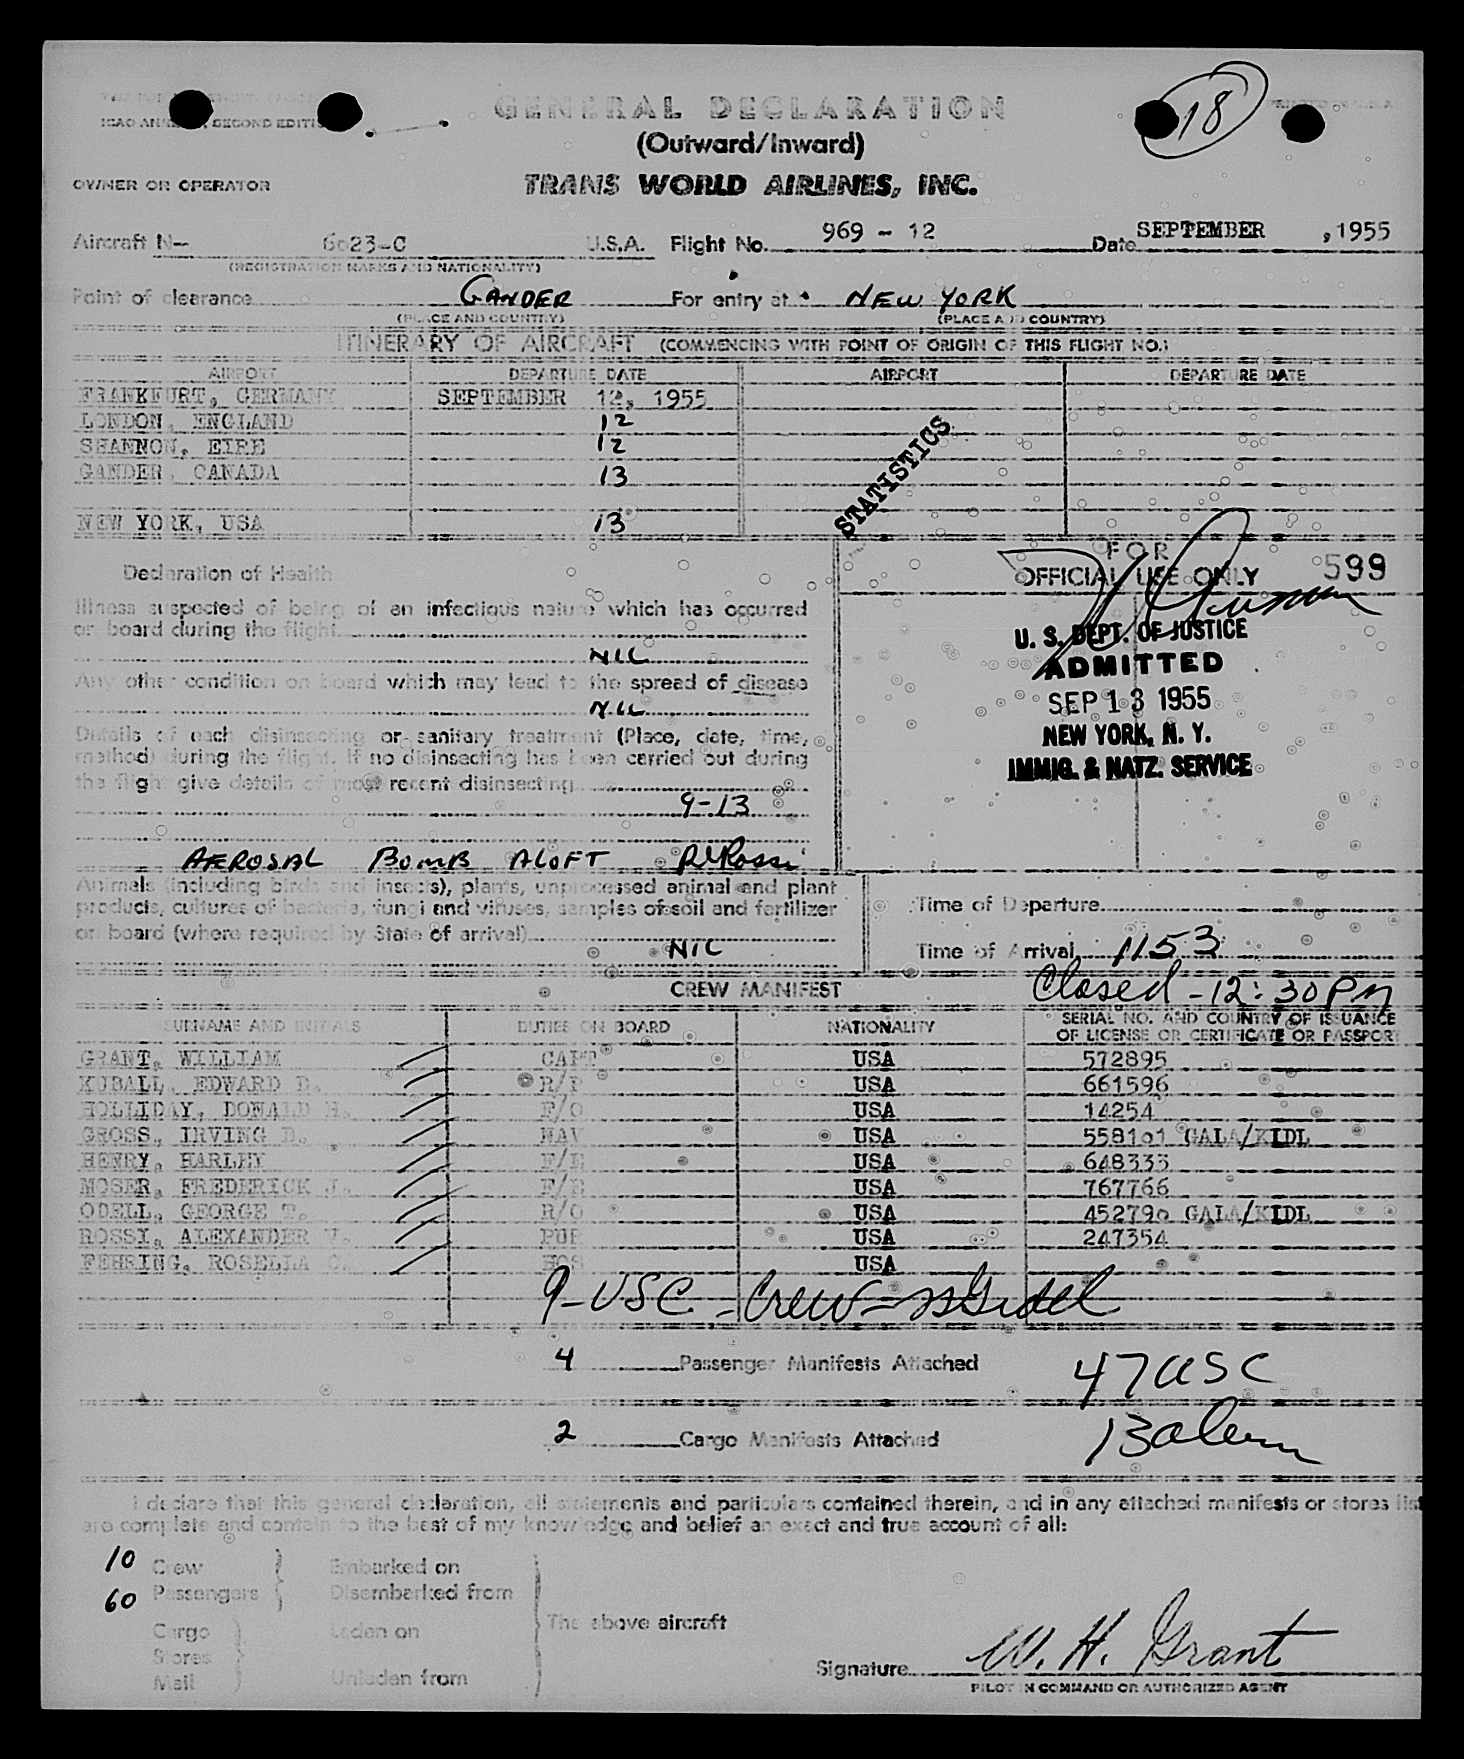 18
GENERAL DECLARATION
ICAO SECOND EDITION
(Outward/Inward)
OWNER OR OPERATOR
TRANS WORLD AIRLINES, INC.
Aircraft N- 6023-C U.S.A. Flight No. 969 - 12 Date SEPTEMBER , 1955
(REGISTRATION MARKS AND NATIONALITY)
Point of clearance GANDER For entry at NEW YORK
(PLACE AND COUNTRY) (PLACE AND COUNTRY)
ITINERARY OF AIRCRAFT (COMMENCING WITH POINT OF ORIGIN OF THIS FLIGHT NO.)
AIRPORT DEPARTURE DATE AIRPORT DEPARTURE DATE
FRANKFURT, GERMANY SEPTEMBER 12, 1955
LONDON, ENGLAND 12
SHANNON, EIRE 12
GANDER, CANADA 13
NEW YORK, USA 13
STATISTICS
FOR
OFFICIAL USE ONLY 599
Declaration of Health
Illness suspected of being of an infectious nature which has occurred
on board during the flight
NIL
Any other condition on board which may lead to the spread of disease
NIL
Details of each disinsecting or sanitary treatment (Place, date, time,
method) during the flight. If no disinsecting has been carried out during
the flight give details of most recent disinsecting
9-13
AEROSAL BOMB ALOFT
U. S. DEPT. OF JUSTICE
ADMITTED
SEP 13 1955
NEW YORK, N. Y.
IMMIG. & NATZ. SERVICE
Animals (including birds and insects), plants, unprocessed animal and plant
products, cultures of bacteria, fungi and viruses, samples of soil and fertilizer
on board (where required by State of arrival)
NIL
Time of Departure
Time of Arrival 1153
Closed - 12:30 PM
CREW MANIFEST
SURNAME AND INITIALS DUTIES ON BOARD NATIONALITY SERIAL NO. AND COUNTRY OF ISSUANCE
OF LICENSE OR CERTIFICATE OR PASSPORT
GRANT, WILLIAM CAPT USA 572895
KUBALL, EDWARD D. R/P USA 661596
HOLLIDAY, DONALD H. F/O USA 14254
GROSS, IRVING D. NAV USA 558101 GALA/KIDL
HENRY, HARLEY F/E USA 648333
MOSER, FREDERICK J. F/E USA 767766
ODELL, GEORGE T. R/O USA 452790 GALA/KIDL
ROSSI, ALEXANDER V. PUR USA 247354
FEHRING, ROSELLA C. HOS USA
9-USC - Crew -
4 Passenger Manifests Attached
47 USC
2 Cargo Manifests Attached
13 alien
I declare that this general declaration, all statements and particulars contained therein, and in any attached manifests or stores list
are complete and contain to the best of my knowledge and belief an exact and true account of all:
10 Crew Embarked on
60 Passengers Disembarked from
The above aircraft
Cargo Laden on
Stores
Mail Unladen from
Signature W. H. Grant
PILOT IN COMMAND OR AUTHORIZED AGENT